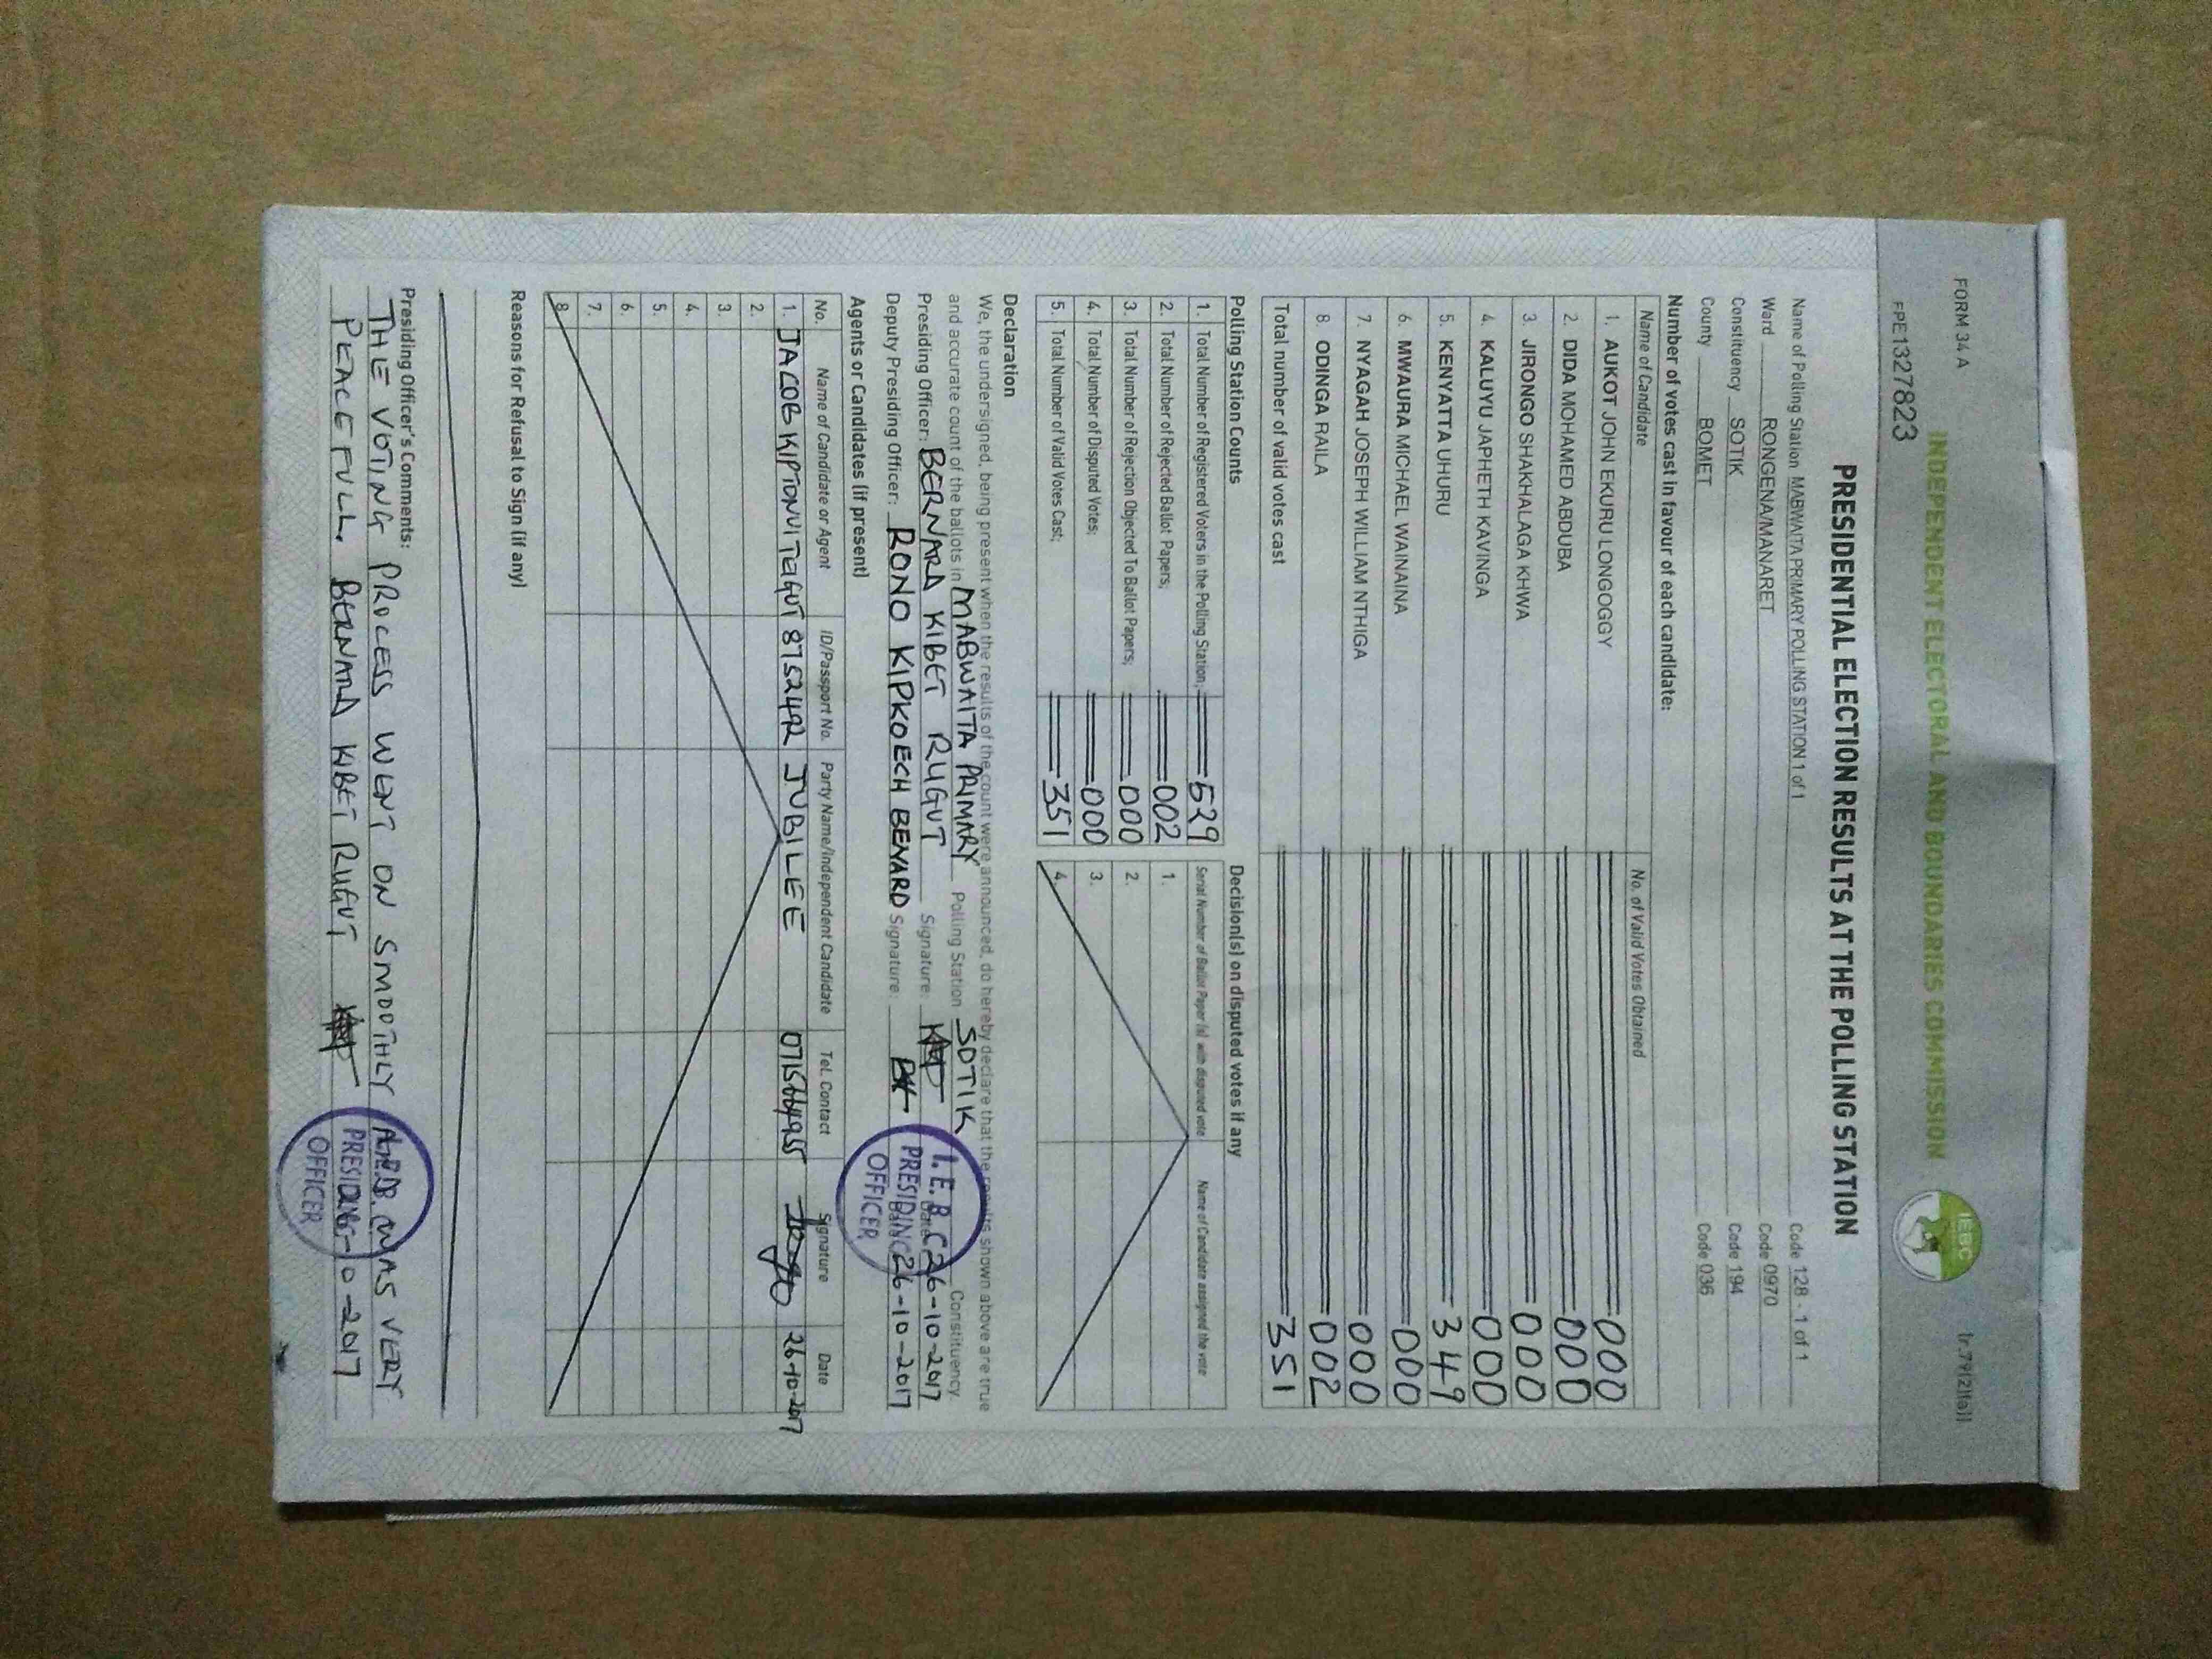 FORM 34 A
(r.79(2)(a))
INDEPENDENT ELECTORAL AND BOUNDARIES COMMISSION
IEBC
EPE1327823
PRESIDENTIAL ELECTION RESULTS AT THE POLLING STATION
Name of Polling Station MABWAITA PRIMARY POLLING STATION 1 of 1 Code 128 - 1 of 1
Ward RONGENA/MANARET Code 0970
Constituency SOTIK Code 194
County BOMET Code 036
Number of votes cast in favour of each candidate:
Name of Candidate No. of Valid Votes Obtained
1. AUKOT JOHN EKURU LONGOGGY 000
2. DIDA MOHAMED ABDUBA 000
3. JIRONGO SHAKHALAGA KHWA 000
4. KALUYU JAPHETH KAVINGA 000
5. KENYATTA UHURU 349
6. MWAURA MICHAEL WAINAINA 000
7. NYAGAH JOSEPH WILLIAM NTHIGA 000
8. ODINGA RAILA 002
Total number of valid votes cast 351
Polling Station Counts
1. Total Number of Registered Voters in the Polling Station; 529
2. Total Number of Rejected Ballot Papers; 002
3. Total Number of Rejection Objected To Ballot Papers; 000
4. Total Number of Disputed Votes; 000
5. Total Number of Valid Votes Cast; 351
Decision(s) on disputed votes if any
Serial Number of Ballot Paper (s) with disputed vote Name of Candidate assigned the vote
1.
2.
3.
4.
Declaration
We, the undersigned, being present when the results of the count were announced, do hereby declare that the results shown above are true
and accurate count of the ballots in MABWAITA PRIMARY Polling Station SOTIK Constituency.
Presiding Officer: BERNARD KIBET RUGUT Signature: Date: 26-10-2017
Deputy Presiding Officer: RONO KIPKOECH BENARD Signature: Date: 26-10-2017
I.E.B.C
PRESIDING
OFFICER
Agents or Candidates (if present)
No. Name of Candidate or Agent ID/Passport No. Party Name/Independent Candidate Tel. Contact Signature Date
1. JACOB KIPTONUI 8752492 JUBILEE 0715664955 26-10-2017
2.
3.
4.
5.
6.
7.
8.
Reasons for Refusal to Sign (if any)
Presiding Officer's Comments:
THE VOTING PROCESS WENT ON SMOOTHLY AND WAS VERY
PEACEFULL. BERNARD KIBET RUGUT 26-10-2017
PRESIDING
OFFICER